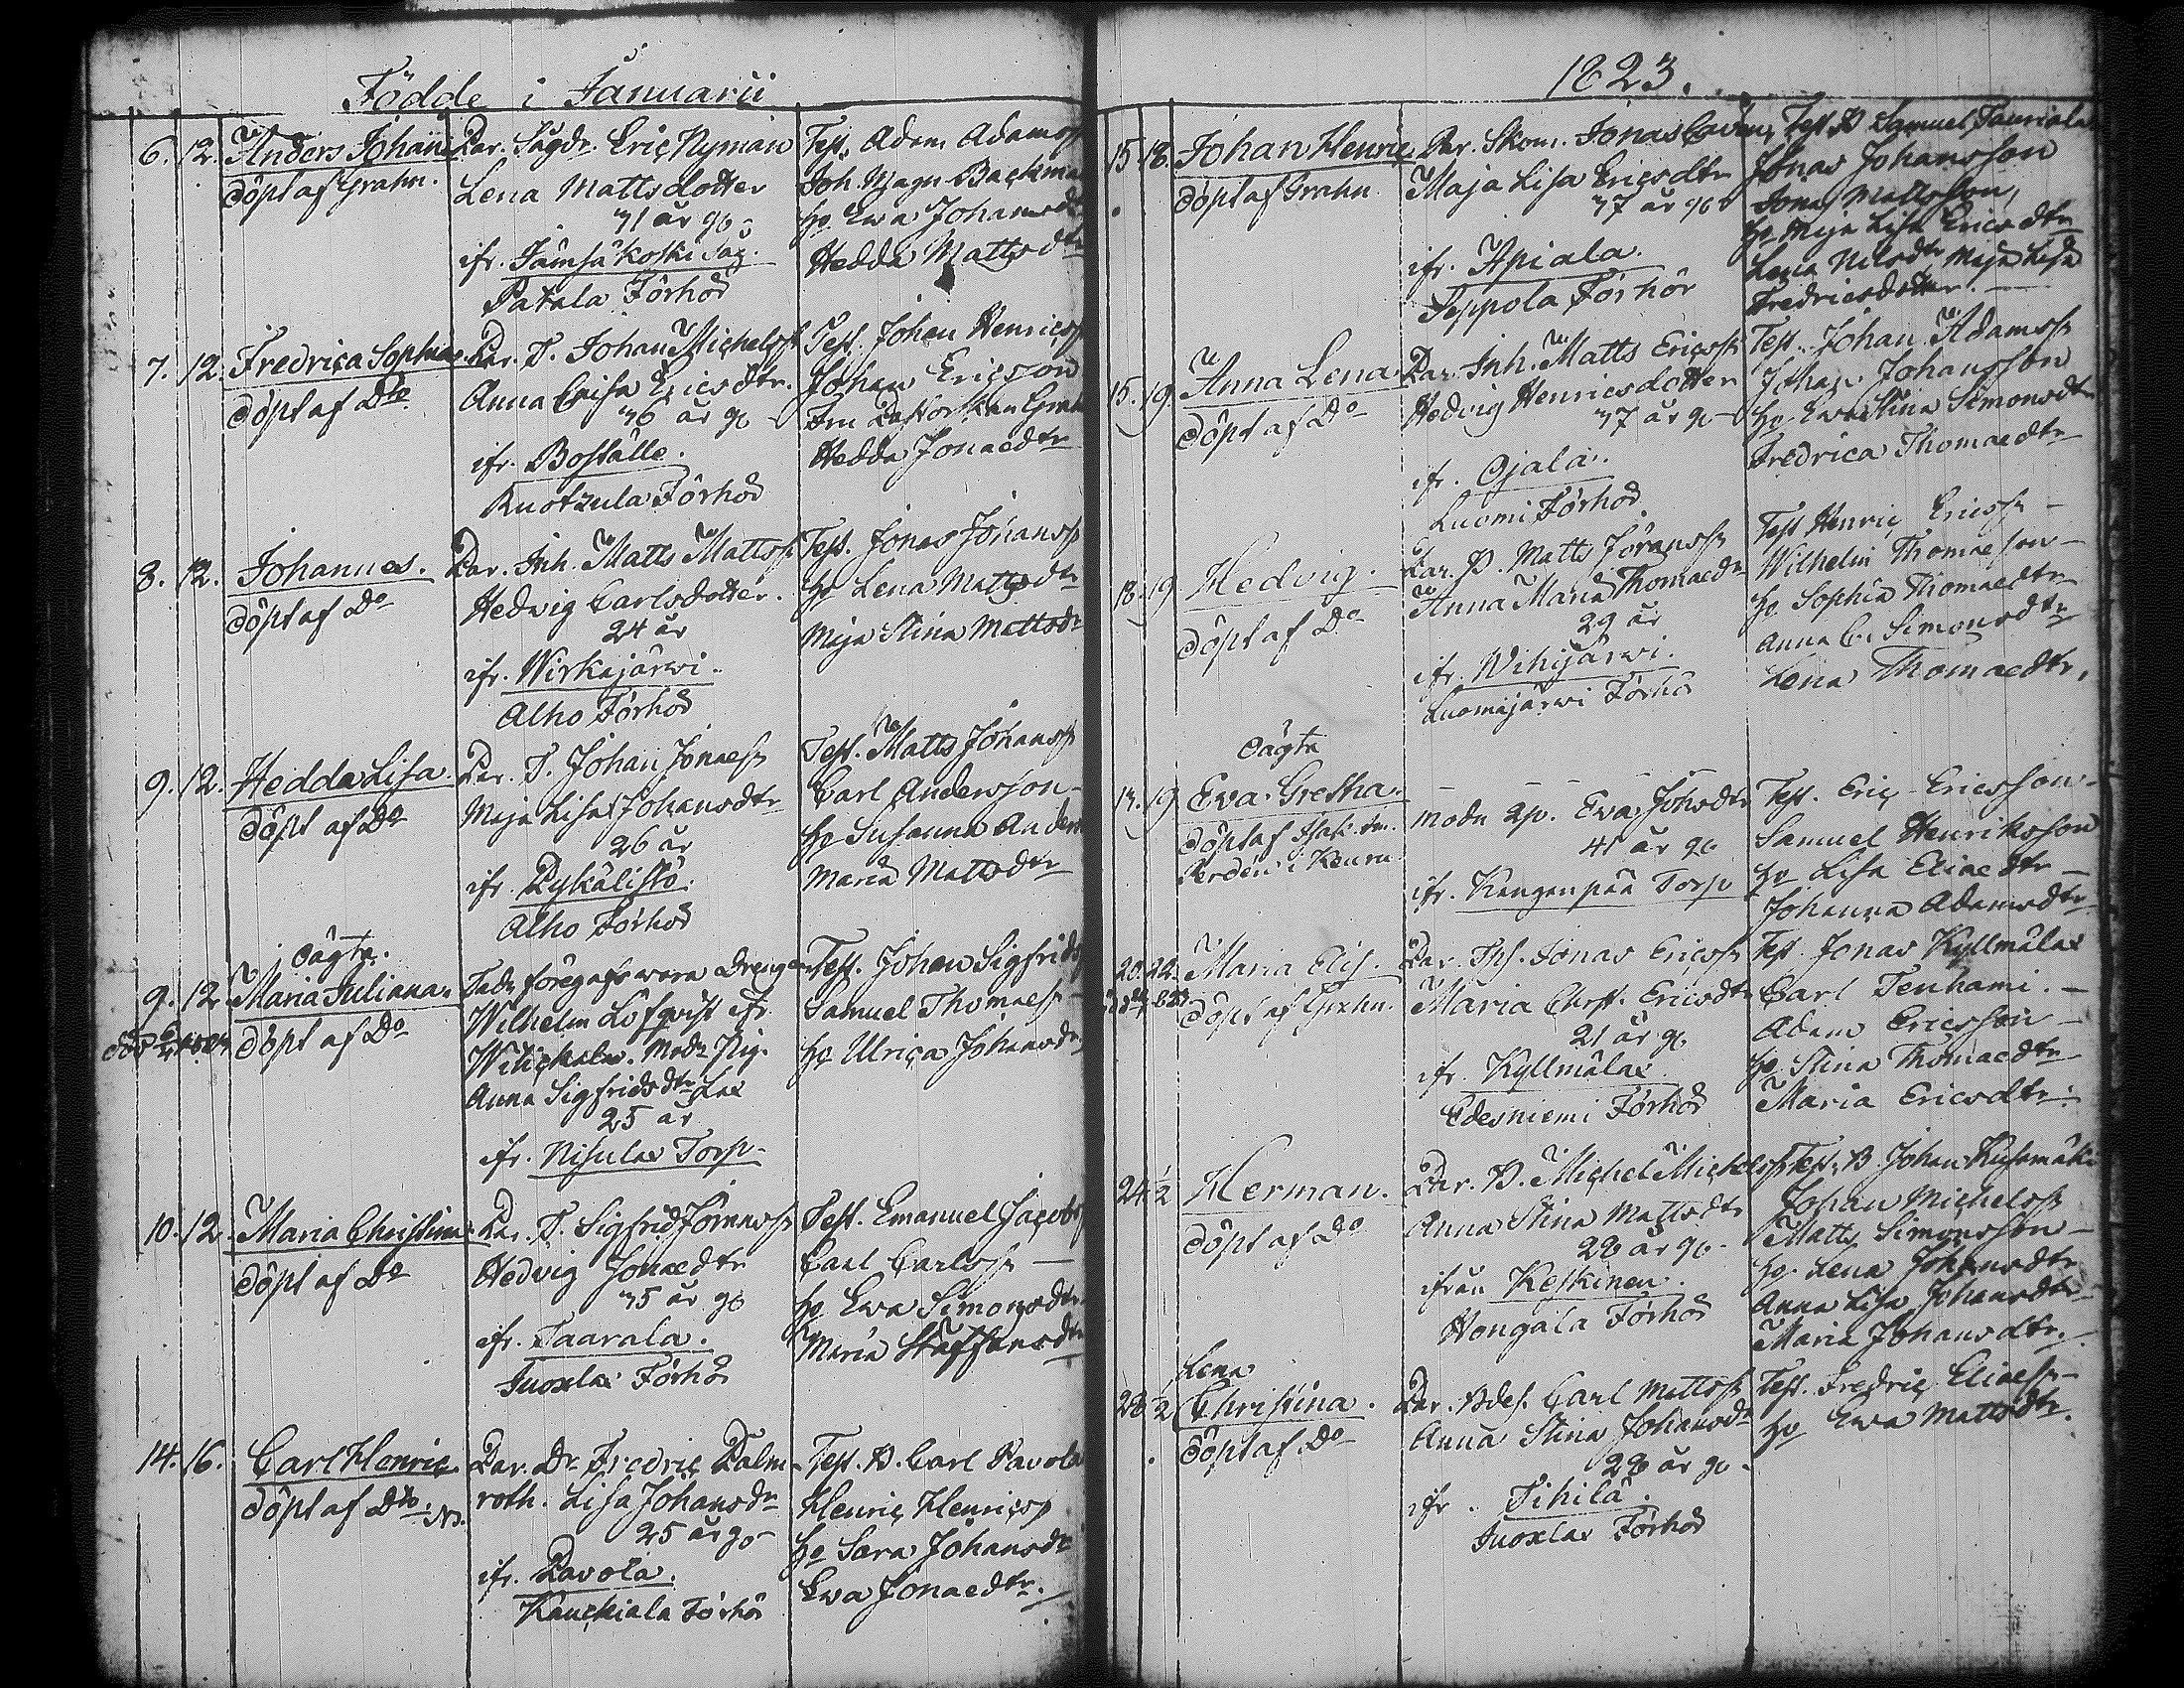 Födde i Januarii
6. 12. Anders Johan
döpt af Grahn.
Par. Sågdr. Eric Nyman
Lena Mattsdotter
31 år g.
ifr. Jämsäkoski Såg.
Patala Förhör
Test. Adam Adamss
Joh. Magn. Backman
ho Ewa Johansdr
Hedda Mattsdtr
7. 12. Fredrica Sophia
döpt af Do
Par. T. Johan Michelss
Anna Caisa Ericsdtr.
36 år g
ifr. Boställe.
Ruotzula Förhör
Test. Johan Henricss
Johan Ericsson
Hedda Jonaedtr
8. 12. Johannes.
döpt af Do
Par. Inh. Matts Mattss
Hedvig Carlsdotter.
24 år
ifr. Wirkajärwi.
Alho Förhör
Test. Jonas Johanss
ho Lena Mattsdtr
Maja Stina Mattsdr
9. 12. Hedda Lisa.
döpt af Do
Par. T. Johan Jonaess
Maja Lisa Johansdtr
26 år
ifr. Pykälistö.
Alho Förhör
Test. Matts Johanss
Carl Andersson
ho Susanna Anders
Maria Mattsdtr
oägta.
9. 12. Maria Juliana.
döpt af Do
Fadr föregafs wara Drengen
Wilhelm Löfqvist ifr.
Modr Pig.
Anna Sigfridsdtr Lax
25 år
ifr. Nisulax Torp
Test. Johan Sigfrids
Samuel Thomaess
ho Ulrica Johansdr
10. 12. Maria Christina.
döpt af Do
Par. T. Sigfrid Jöranss
Hedvig Jonaedtr
35 år g
ifr. Taarala.
Juoxlax Förhör
Test. Emanuel Jacobs
Carl Carlss
ho Ewa Simonsdtr
Maria Staffansdtr
14. 16. Carl Henric.
döpt af Do.
Par. Dr. Fredric Palm-
roth. Lisa Johansdr
25 år g
ifr. Pavola.
Kauckiala Förhör
Test. B. Carl Pavola
Henric Henricss
ho Sara Johansdr
Ewa Jonaedtr.
1823.
15. 18. Johan Henric
döpt af Grahn.
Maja Lisa Ericsdtr
37 år g
ifr. Apiala.
Seppola Förhör
Test. B Samuel Tauriala
Jonas Johansson
Jonas Mattsson,
ho Maja Lisa Ericsdtr
Lena Nilsdtr Maja Lisa
Fredricsdotter.
15. 19. Anna Lena.
döpt af Do
Par. Inh. Matts Ericss
Hedvig Henricsdotter
37 år g
ifr. Ojala.
Luomi Förhör.
Test. Johan Adamss
Johan Johansson
ho Ewa Stina Simonsdtr
Fredrica Thomaedtr
18. 19. Hedvig.
döpt af Do
Par. B. Matts Jöranss
Anna Maria Thomaedr
29 år
ifr. Wihijärwi.
Luomajärwi Förhör
Test Henric Ericss
Wilhelm Thomaeson
ho. Sophia Thomaedtr
Anna C. Simonsdtr
Lena Thomaedtr.
oägta
19. Eva Gretha.
döpt af
i Keuru
Modr Ewa Johsdtr
41 år g
ifr. Kangenpää Torp
Test. Eric Ericsson
Samuel Henriksson
ho Lisa Eliaedtr
Johanna Adamsdtr
20. 22. Maria Elis.
döpt af Grahn.
Par. Jonas Ericss
Maria Chrst. Ericsdtr
21 år g.
ifr. Kyllmälax
Edesniemi Förhör
Test Jonas Kyllmälax
Carl Tenhami.
Adam Ericsson
ho Stina Thomaedtr
Maria Ericsdtr.
24. 1/2 Herman.
döpt af Do
Par. B. Michel Michelss
Anna Stina Mattsdtr
28 år g.
ifrån Keskinen.
Hongala Förhör
Test. B. Johan Kusamäki
Johan Michelss
Matts Simonsson
ho. Lena Johansdtr
Anna Lisa Johansdtr
Maria Johansdtr.
Lena
28 1/2 Christina.
döpt af Do
Par. Carl Mattss
Anna Stina Johansdtr
28 år g.
ifr. Tihilä.
Juoxlax Förhör
Test. Fredric Eliaess
ho Ewa Mattsdtr.